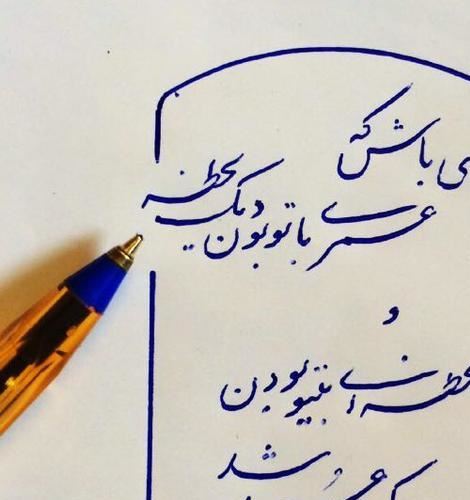 ی باش که
عمری با تو بودن یک لحظه
و
لحظه ای بیتو بودن
شد